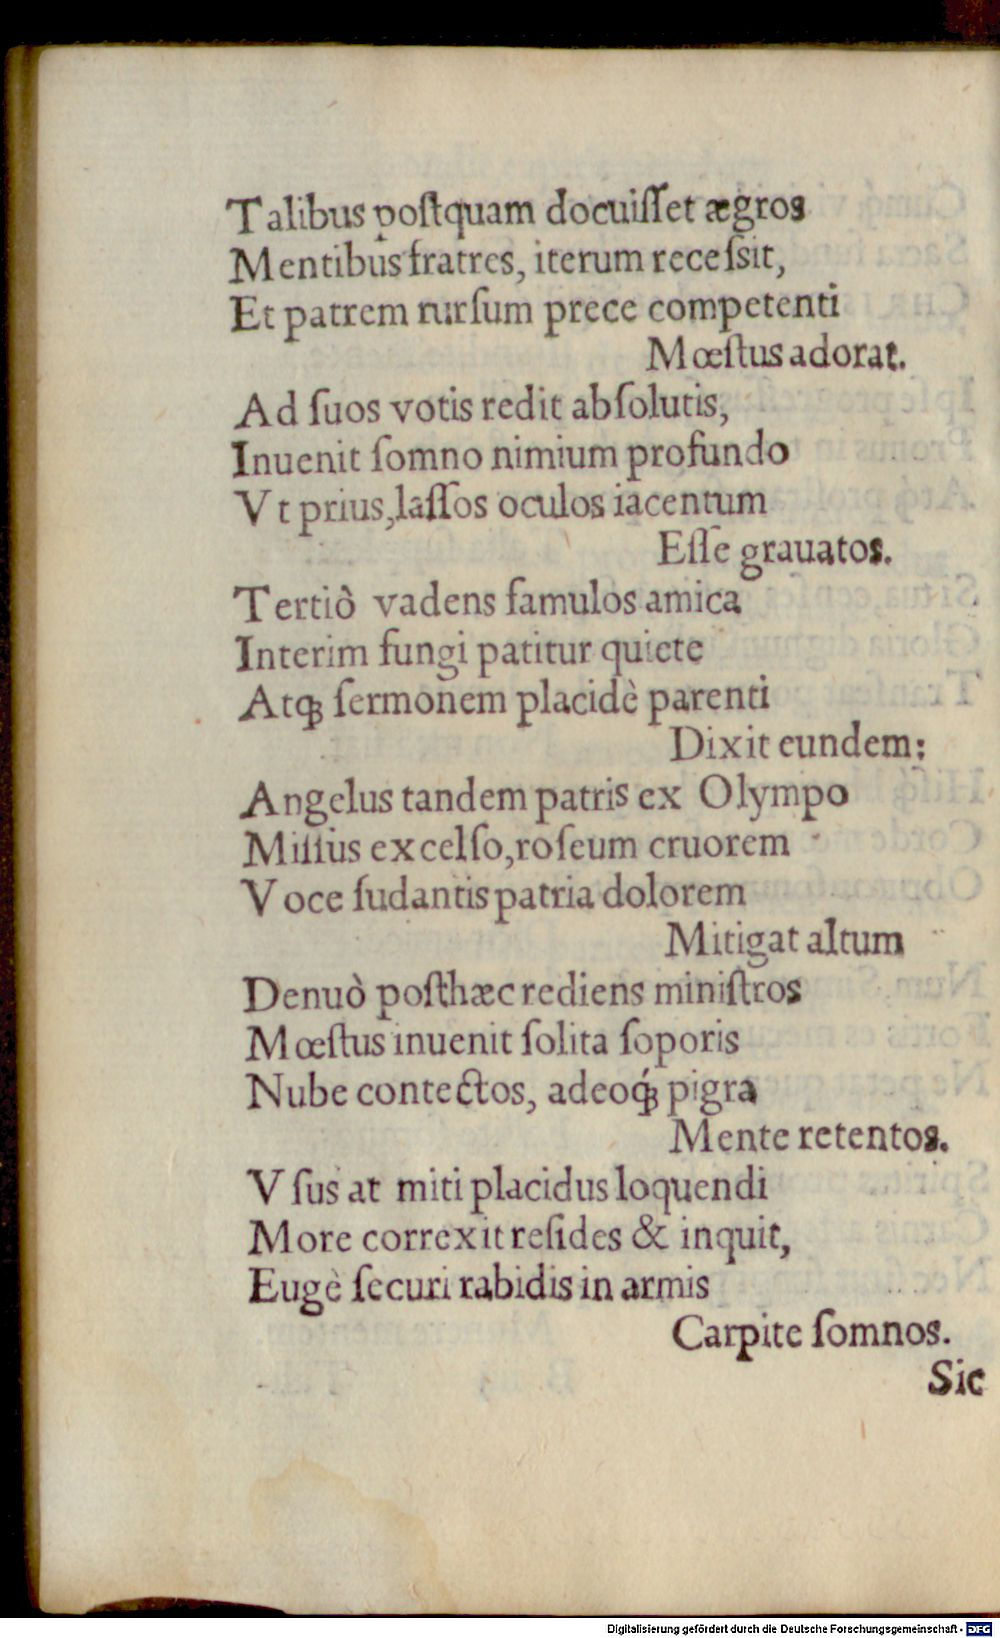 Talibus postquam docuiſſet ægros
Mentibus fratres, iterum receſsit,
Et patrem rurſum prece competenti
Mœſtus adorat.
Ad ſuos votis redit abſolutis,
Inuenit ſomno nimium profundo
Vt prius, laſſos oculos iacentum
Eſſe grauatos.
Tertiò vadens famulos amica
Interim fungi patitur quiete
Atqꝫ ſermonem placidè parenti
Dixit eundem:
Angelus tandem patris ex Olympo
Miſſus excelſo, roſeum cruorem
Voce ſudantis patria dolorem
Mitigat altum
Denuò poſthæc rediens miniſtros
Mœſtus inuenit ſolita ſoporis
Nube contectos, adeoq́ꝫ pigra
Mente retentos.
Vſus at miti placidus loquendi
More correxit reſides & inquit,
Eugè ſecuri rabidis in armis
Carpite ſomnos.
Sic
Digitalisierung gefördert durch die Deutsche Forschungsgemeinschaft - DFG